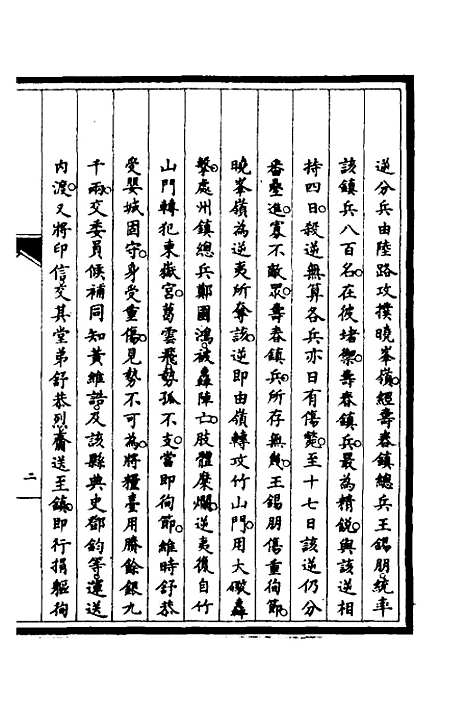 逆分兵由陸路攻撲曉峯嶺。經壽春鎮總兵王錫朋。統率
該鎮兵八百名。在彼堵禦。壽春鎮兵。最為精銳。與該逆相
持四日。殺逆無算各兵亦日有傷斃。至十七日該逆仍分
番壘進。寡不敵眾。壽春鎮兵。所存無幾。王錫朋傷重徇節。
曉峯嶺為逆夷所奪。該逆即由嶺轉攻竹山門。用大礮轟
擊。處州鎮總兵鄭國鴻。被轟陣亡。肢體糜爛。逆夷復自竹
山門轉犯東嶽宮。葛雲飛勢孤不支。當即徇節。維時舒恭
受嬰城固守。身受重傷。見勢不可為。將糧臺用賸餘銀九
千兩。交委員候補同知黃維誥。及該縣典史鄧鈞等。運送
內渡。又將印信交其堂弟舒恭烈。齎送至鎮。即行捐軀徇
二